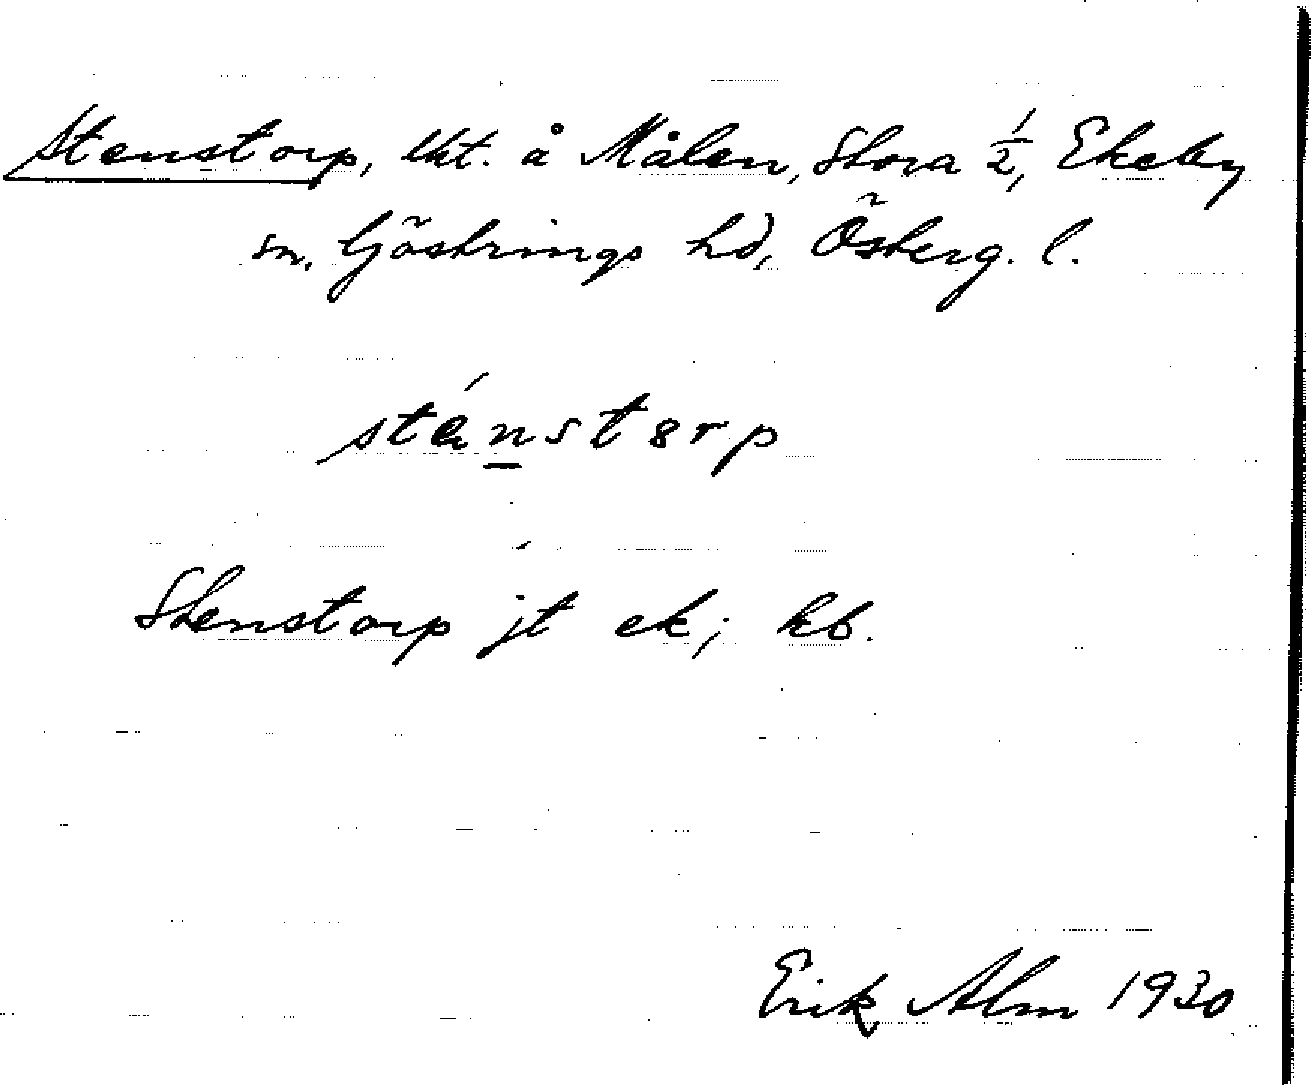 Stenstorp, tht. å Målen, Stora ½, Ekeby
sn, Göstrings hd, Österg. l.
sténstɘrp
Stenstorp jt ek; kb.
Erik Alm 1930